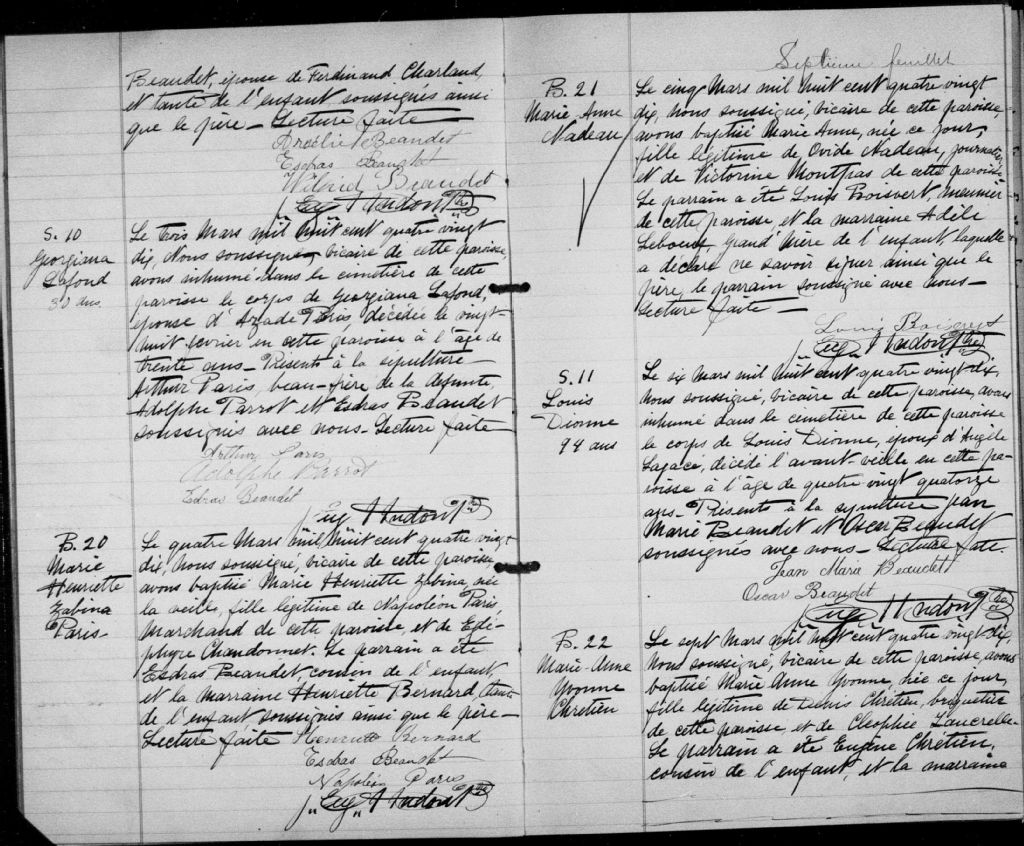 Beaudet, épouse de Ferdinand Charland,
et tante de l'enfant soussignés ainsi
que le père — Lecture faite —
Beaudet
Esdras Beaudet
Wilfrid Beaudet
Eug Hudon Ptre
S. 10
Georgiana
Lafond
30 ans.
Le trois Mars mil huit cent quatre vingt
dix, Nous soussigné, vicaire de cette paroisse,
avons inhumé dans le cimetière de cette
paroisse le corps de Georgiana Lafond,
épouse d'Azade Paris, décédée le vingt
huit février en cette paroisse à l'âge de
trente ans — Présents à la sépulture
Arthur Paris, beau-frère de la defunte,
Adolphe Parrot et Esdras Beaudet
soussignés avec nous — Lecture faite —
Arthur Paris
Adolphe Perrot
Esdras Beaudet
Eug Hudon Ptre
B. 20
Marie
Henriette
Zabina
Paris —
Le quatre Mars mil huit cent quatre vingt
dix, nous soussigné, vicaire de cette paroisse,
avons baptisé Marie Henriette Zabina, née
la veille, fille légitime de Napoléon Paris,
Marchand de cette paroisse, et de
Chandonnet. Le parrain a été
Esdras Beaudet, cousin de l'enfant,
et la marraine Henriette Bernard, tante
de l'enfant soussignés ainsi que le père —
Lecture faite Henriette Bernard
Esdras Beaudet
Napoléon Paris
Eug Hudon Ptre
Septième feuillet
B. 21
Marie Anne
Nadeau
Le cinq Mars mil huit cent quatre vingt
dix, nous soussigné, vicaire de cette paroisse,
avons baptisé Marie Anne, née ce jour,
fille légitime de Ovide Nadeau, journalier,
et de Victorine Montpas de cette paroisse
Le parrain a été Louis Boisvert, meunier
de cette paroisse, et la marraine Adèle
Leboeuf, grand'mère de l'enfant, laquelle
a déclaré ne savoir signer ainsi que le
père, le parrain soussigné avec nous —
Lecture faite —
Louis
Eug Hudon Ptre
S. 11
Louis
Dionne
94 ans
Le six Mars mil huit cent quatre vingt dix,
nous soussigné, vicaire de cette paroisse, avons
inhumé dans le cimetière de cette paroisse
le corps de Louis Dionne, époux d'Angèle
Lagacé, décédé l'avant-veille en cette pa-
roisse à l'âge de quatre vingt quatorze
ans — Présents à la sépulture Jean
Marie Beaudet et Oscar Beaudet
soussignés avec nous — Lecture faite.
Jean Marie Beaudet
Oscar Beaudet
Eug Hudon Ptre
B. 22
Marie Anne
Yvonne
Chretien
Le sept Mars mil huit cent quatre vingt dix,
nous soussigné, vicaire de cette paroisse, avons
baptisé Marie Anne Yvonne, née ce jour,
fille légitime de Denis Chrétien, briquetier
de cette paroisse, et de Cleophée
Le parrain a été Eugène Chrétien,
cousin de l'enfant, et la marraine